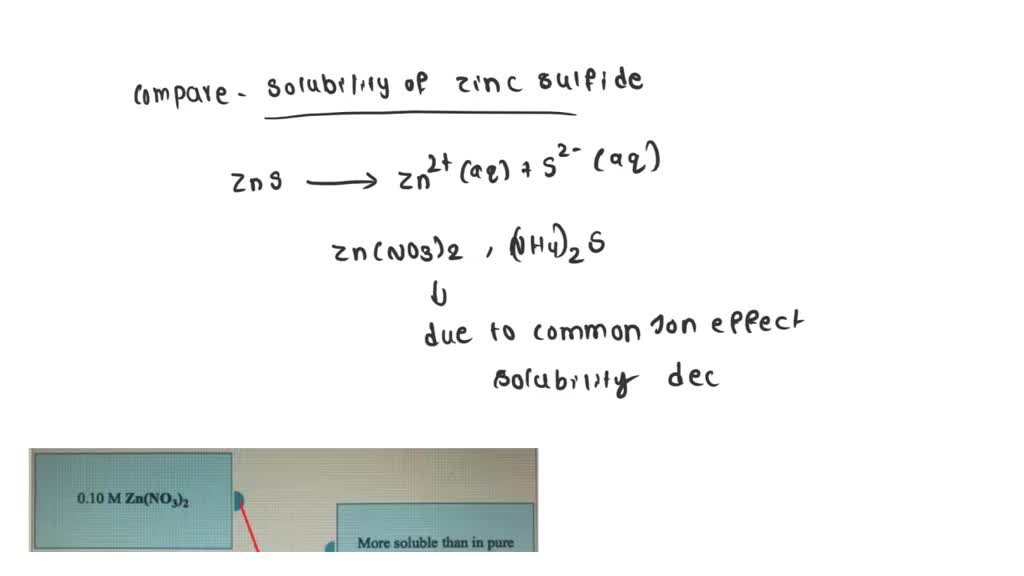 compare - solubility of zinc sulfide
ZnS → Zn²⁺(aq) + S²⁻ (aq)
Zn(NO3)2 , (NH4)2 S
↓
due to common ion effect
solubility dec
0.10 M Zn(NO₃)₂
More soluble than in pure